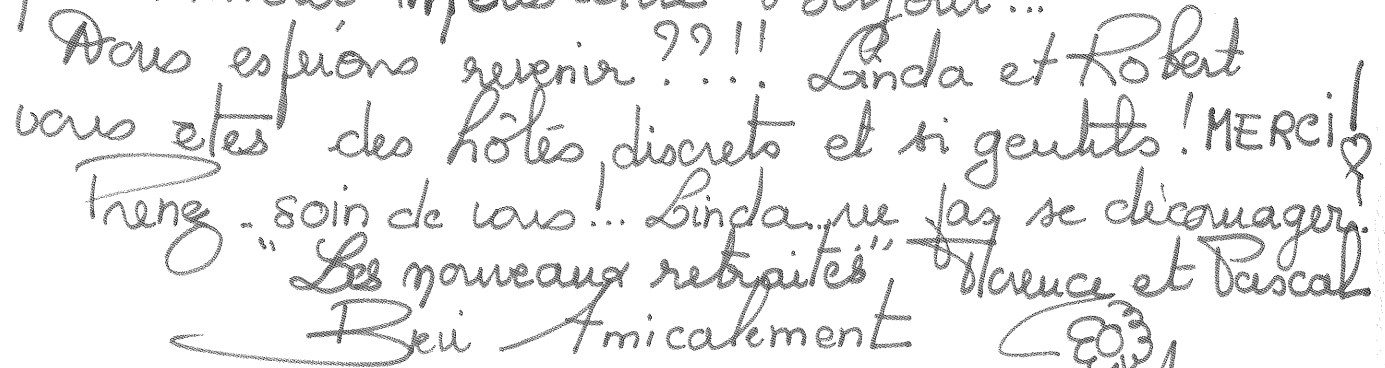 séjour...
Nous espérons revenir ??!! Linda et Robert
vous êtes des hôtes discrets et si gentils ! MERCI !
Prenez - soin de vous !.. Linda... ne pas se décourager.
"Les nouveaux retraités" Florence et Pascal
Bien Amicalement